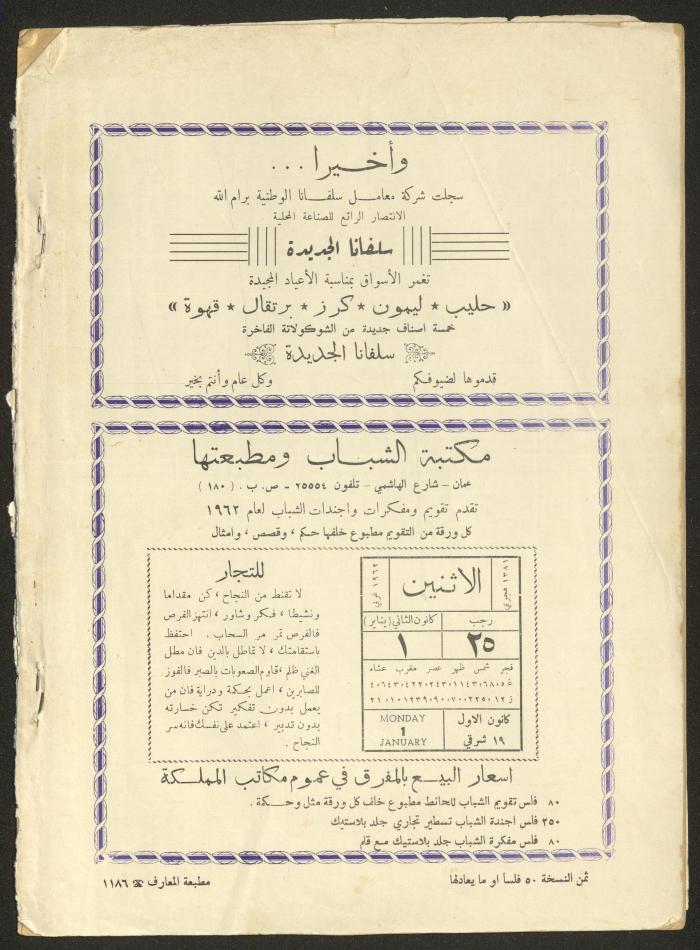 وأخيرا . . .
سجلت شركة معامل سلفانا الوطنية برام الله
الانتصار الرائع للصناعة المحلية
سلفانا الجديدة
تغمر الأسواق بمناسبة الأعياد المجيدة
« حليب ٭ ليمون ٭ كرز ٭ برتقال ٭ قهوة »
خمسة اصناف جديدة من الشوكولاتة الفاخرة
سلفانا الجديدة
قدموها لضيوفكم وكل عام وأنتم بخير
مكتبة الشباب ومطبعتها
عمان – شارع الهاشمي – تلفون ٢٥٥٥٤ – ص. ب. ( ١٨٠ )
تقدم تقويم ومفكرات واجندات الشباب لعام ١٩٦٢
كل ورقة من التقويم مطبوع خلفها حكم ، وقصص ، وامثال
١٣٨١ هجري
الاثنين
١٩٦٢ غربي
رجب
٢٥
كانون الثاني (يناير)
١
فجر شمس ظهر عصر مغرب عشاء
كانون الاول
١٩ شرقي
MONDAY
1
JANUARY
للتجار
لا تقنط من النجاح ، كن مقداما
ونشيطا ، فكر وشاور ، انتهز الفرص
فالفرص تمر مر السحاب . احتفظ
باستقامتك ، لا تماطل بالدين فان مطل
الغني ظلم ، قاوم الصعوبات بالصبر فالفوز
للصابرين ، اعمل بحكمة ودراية فان من
يعمل بدون تفكير تكن خسارته
بدون تدبير ، اعتمد على نفسك فانه سر
النجاح .
اسعار البيع بالمفرق في عموم مكاتب المملكة
٨٠ فلس تقويم الشباب للحائط مطبوع خلف كل ورقة مثل وحكمة .
٢٥٠ فلس اجندة الشباب تسطير تجاري جلد بلاستيك
٨٠ فلس مفكرة الشباب جلد بلاستيك مع قلم
ثمن النسخة ٥٠ فلسا او ما يعادلها
مطبعة المعارف ☎ ١١٨٦